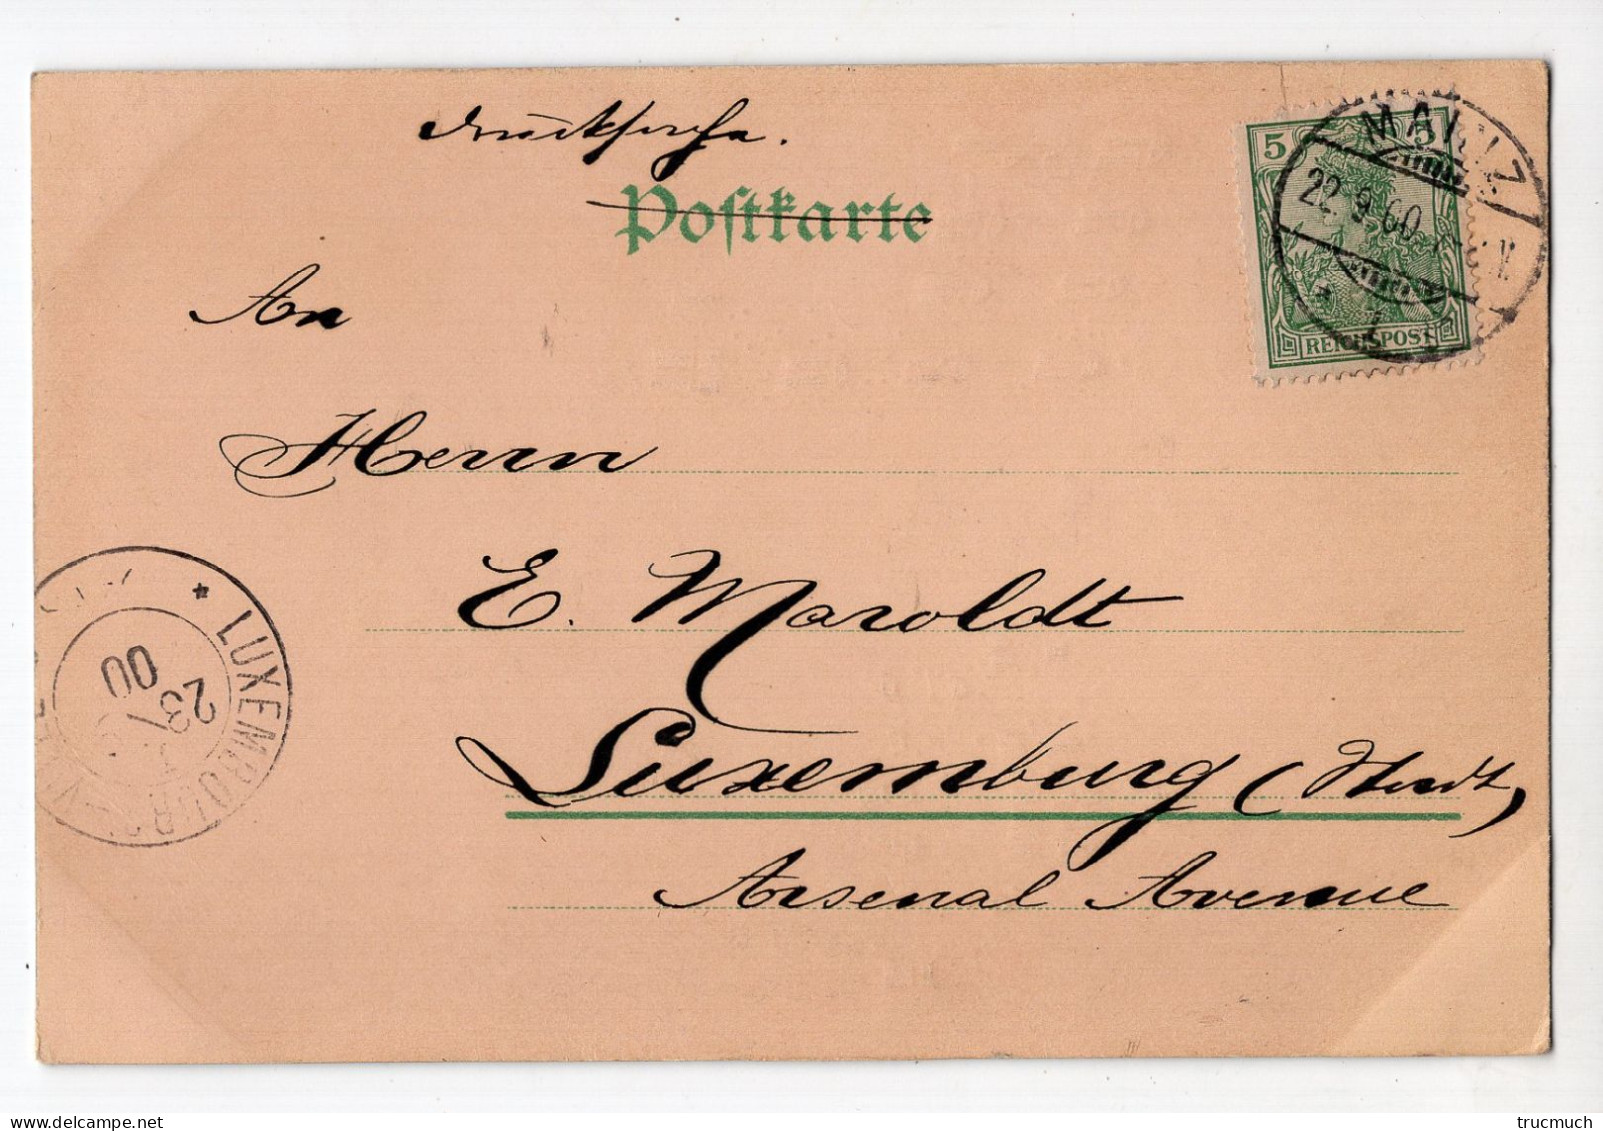 Drucksache.
Postkarte
An
Herrn
E. Maroldt
Luxemburg (Stadt)
Arsenal Avenue
5 5
REICHSPOST
MAINZ
22.9.00
1
* LUXEMBOURG-VILLE
23
00
trucmuch